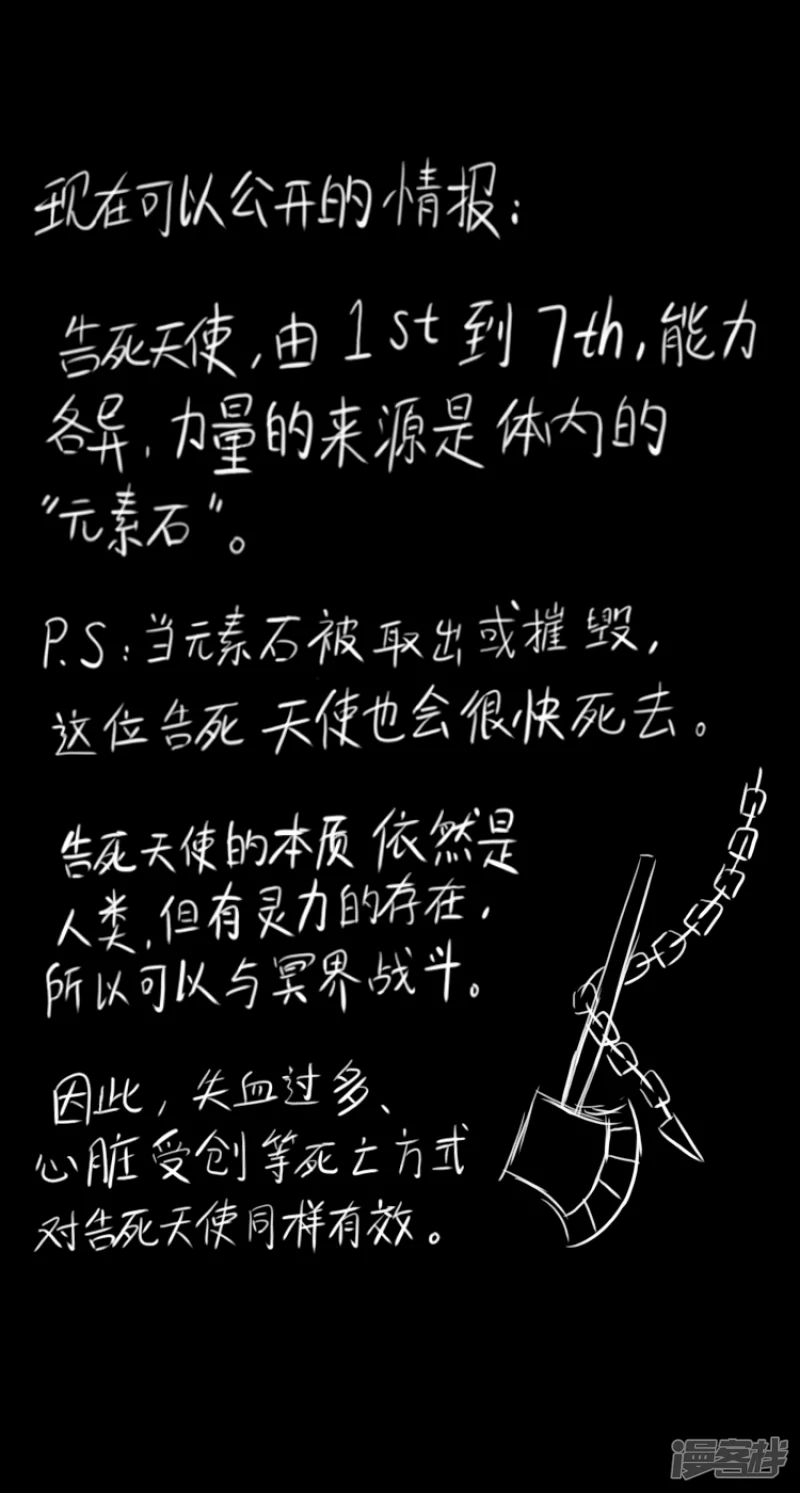 现在可以公开的情报：
告死天使，由1st到7th，能力
各异，力量的来源是体内的
"元素石"。
P.S：当元素石被取出或摧毁，
这位告死天使也会很快死去。
告死天使的本质依然是
人类，但有灵力的存在，
所以可以与冥界战斗。
因此，失血过多、
心脏受创等死亡方式
对告死天使同样有效。
漫客栈